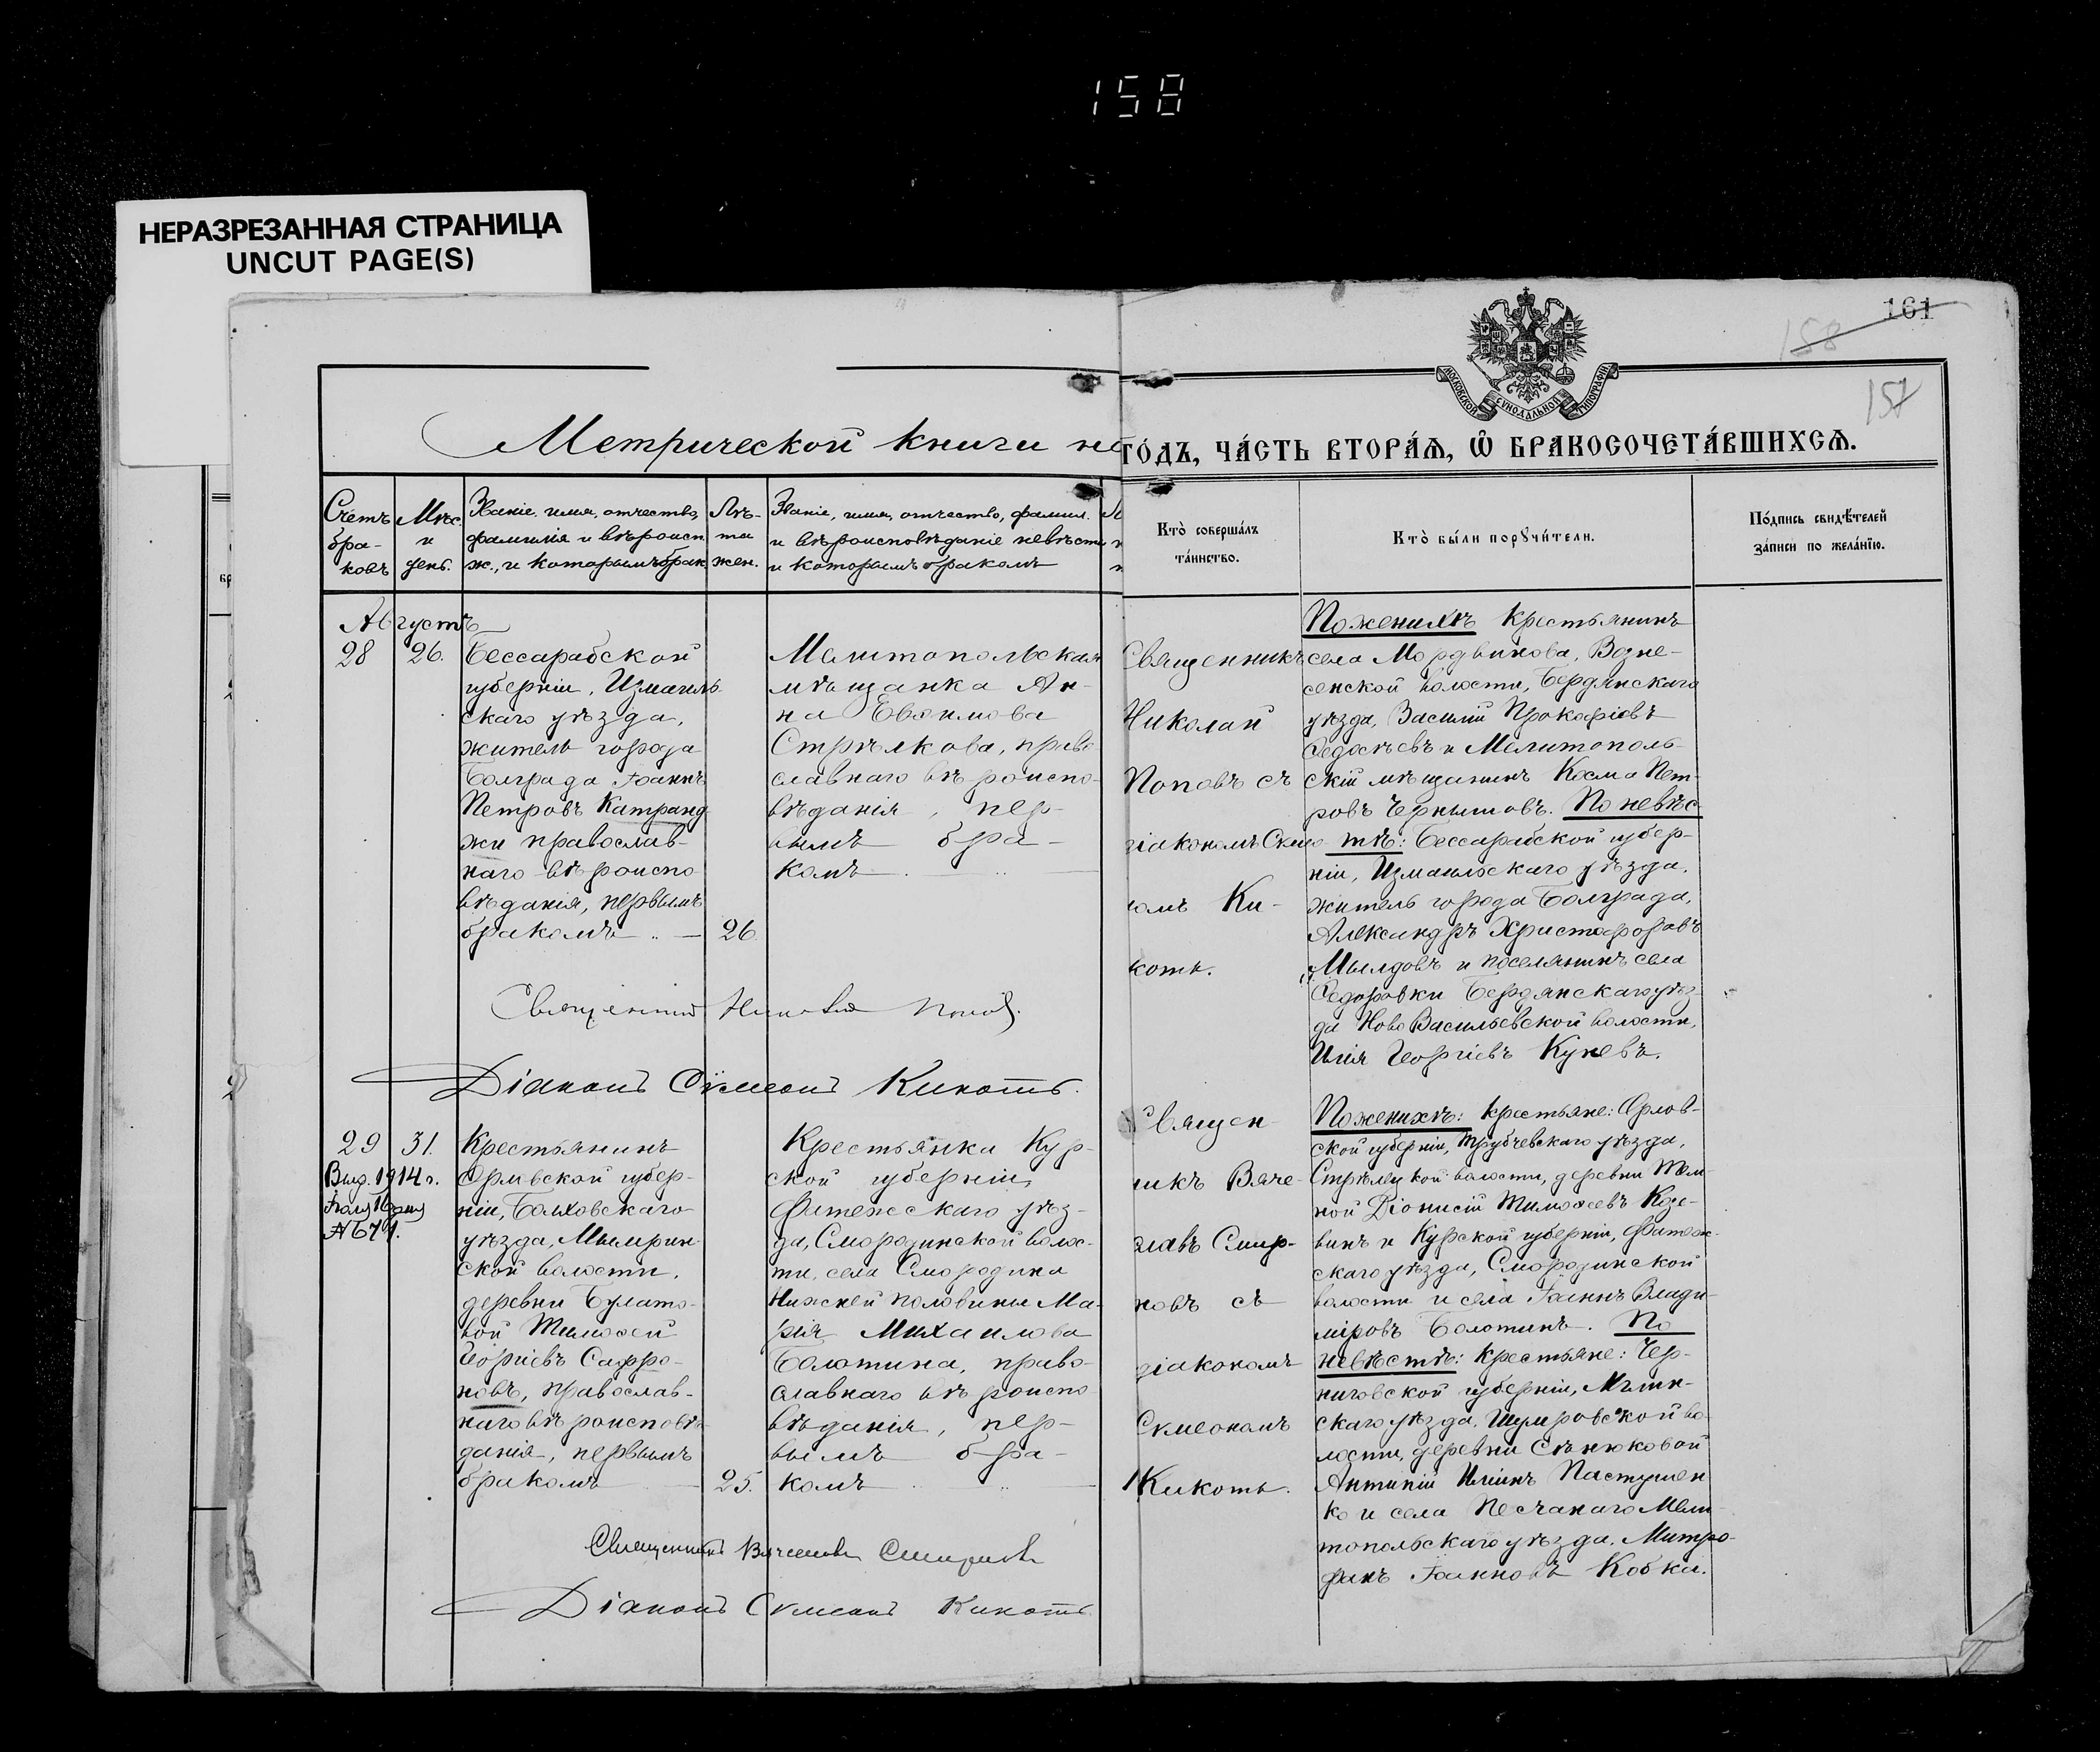 158
НЕРАЗРЕЗАННАЯ СТРАНИЦА
UNCUT PAGE(S)
161
158
157
МОСКОВСКОЙ СѴНОДАЛЬНОЙ ТИПОГРАФІИ
Метрической книги на
го́дъ, ча́сть втора́ѧ, ѡ҆ бракосочета́вшихсѧ.
Счетъ
бра-
ковъ
Мѣс.
и
день.
Званіе, имя, отчество,
фамилія и вѣроисп.
ж., и которымъ брак.
Лѣ-
та
жен.
Званіе, имя, отчество, фамил.
и вѣроисповѣданіе невѣсты
и которымъ бракомъ
Кто̀ соверша́лъ
та́инство.
Кто̀ бы́ли порꙋчи́тели.
По́дпись свидѣ́телей
за́писи по жела́нїю.
Августъ
28
26.
Бессарабской
губерніи, Измаиль-
скаго уѣзда,
житель города
Болграда Іоаннъ
Петровъ Катранд-
жи православ-
наго вѣроиспо-
вѣданія, первымъ
бракомъ
26.
Мелитопольская
мѣщанка Ан-
на Евфимова
Стрѣлкова, право-
славнаго вѣроиспо-
вѣданія, пер-
вымъ бра-
комъ
Священникъ
Николай
Поповъ съ
діакономъ
Ки-
коть.
По женихѣ крестьянинъ
села Мордвинова, Возне-
сенской волости, Бердянскаго
уѣзда, Василій Прокофіевъ
Федосѣевъ и Мелитополь-
скій мѣщанинъ Косма Пет-
ровъ Чернышовъ. По невѣс-
тѣ: Бессарабской губер-
ніи, Измаильскаго уѣзда,
житель города Болграда,
Александръ Христофоровъ
Мылдовъ и поселянинъ села
Федоровки Бердянскаго уѣз-
да Ново Васильевской волости,
Илія Георгіевъ Куневъ.
Священникъ Николай Попов.
Діаконъ Сѵмеонъ Кикоть.
29
31.
Выд. 1914 г.
№ 671.
Крестьянинъ
Орловской губер-
ніи, Болховскаго
уѣзда, Мымрин-
ской волости,
деревни Булато-
вой Тимоѳей
Георгіевъ Сафро-
новъ, православ-
наго вѣроисповѣ-
данія, первымъ
бракомъ
25.
Крестьянка Кур-
ской губерніи,
Фатежскаго уѣз-
да, Смородинской волос-
ти, села Смородина
Нижней половины Ма-
рія Михаилова
Болотина, право-
славнаго вѣроиспо-
вѣданія, пер-
вымъ бра-
комъ
Священ-
никъ Вяче-
славъ Смир-
новъ съ
діакономъ
Сѵмеономъ
Кикоть.
По женихѣ: крестьяне: Орлов-
ской губерніи, Трубчевскаго уѣзда,
Стрѣлецкой волости, деревни Тем-
ной Діонисій Тимоѳеевъ Козе-
винъ и Курской губерніи, Фатеж-
скаго уѣзда, Смородинской
волости и села Іоаннъ Влади-
міровъ Болотинъ. По
невѣстѣ: крестьяне: Чер-
ниговской губерніи, Мглин-
скаго уѣзда, Шумровской во-
лости, деревни Сѣнюковой
Антипій Иліинъ Пастушен-
ко и села Песчанаго Мели-
топольскаго уѣзда, Митро-
фанъ Іоанновъ Кобка.
Священникъ Вячеславъ Смирновъ
Діаконъ Сѵмеонъ Кикоть